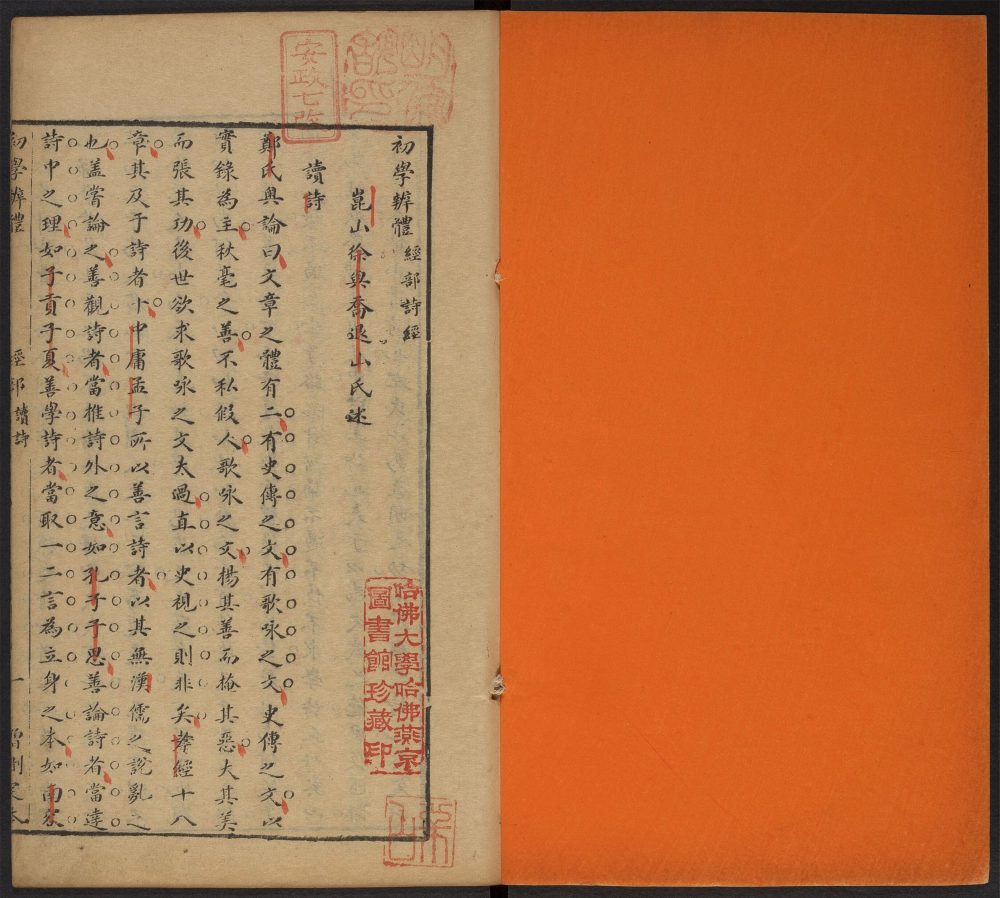 初學辨體 經部詩經
崑山徐與喬退山氏述
讀詩
鄭氏輿論曰文章之體有二有史傳之文有歌咏之文史傳之文以
實錄為主秋毫之善不私假人歌咏之文揚其善而掩其惡大其美
而張其功後世欲求歌咏之文太過直以史視之則非矣孝經十八
章其及于詩者十中庸孟子所以善言詩者以其無漢儒之說亂之
也盖嘗論之善觀詩者當推詩外之意如孔子子思善論詩者當達
詩中之理如子貢子夏善學詩者當取一二言為立身之本如南容
初學辨體
經部讀詩
一
安政七改
哈佛大學哈佛燕京
圖書館珍藏印